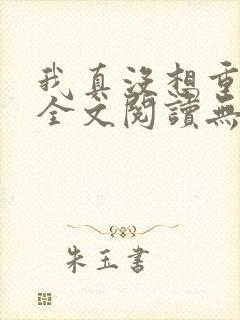 我真沒想重
全文閱讀無
朱玉書